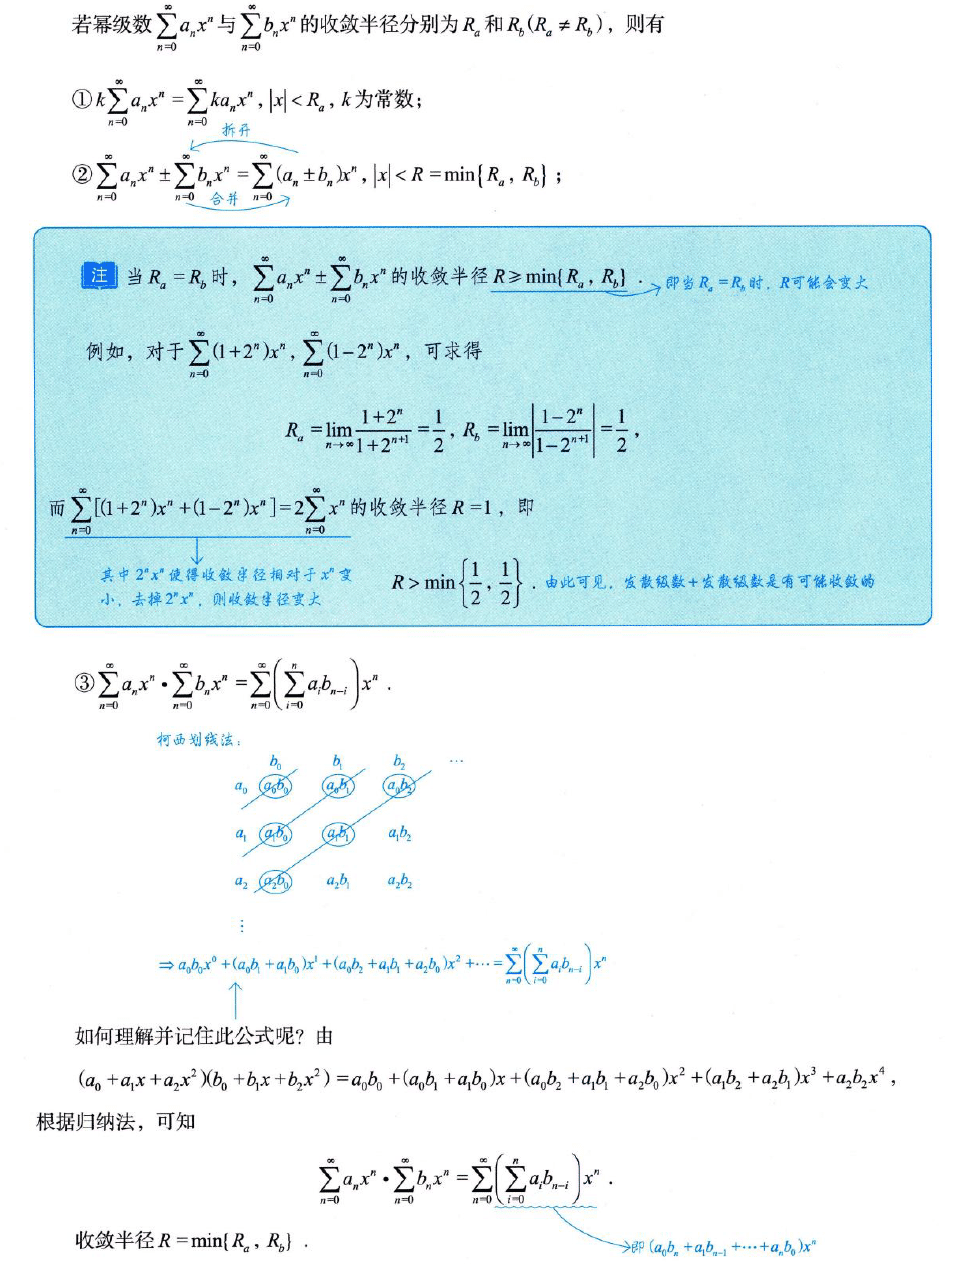 若幂级数 $\sum_{n=0}^{\infty} a_n x^n$ 与 $\sum_{n=0}^{\infty} b_n x^n$ 的收敛半径分别为 $R_a$ 和 $R_b (R_a \neq R_b)$，则有
① $k\sum_{n=0}^{\infty} a_n x^n = \sum_{n=0}^{\infty} k a_n x^n, |x| < R_a$，$k$ 为常数；
拆开
② $\sum_{n=0}^{\infty} a_n x^n \pm \sum_{n=0}^{\infty} b_n x^n = \sum_{n=0}^{\infty} (a_n \pm b_n) x^n, |x| < R = \min\{R_a, R_b\}$；
合并
注 当 $R_a = R_b$ 时，$\sum_{n=0}^{\infty} a_n x^n \pm \sum_{n=0}^{\infty} b_n x^n$ 的收敛半径 $R \geqslant \min\{R_a, R_b\}$．即当 $R_a = R_b$ 时，R可能会变大
例如，对于 $\sum_{n=0}^{\infty} (1+2^n) x^n, \sum_{n=0}^{\infty} (1-2^n) x^n$，可求得
$R_a = \lim_{n\to\infty} \frac{1+2^n}{1+2^{n+1}} = \frac{1}{2}, R_b = \lim_{n\to\infty} \left|\frac{1-2^n}{1-2^{n+1}}\right| = \frac{1}{2},$
而 $\sum_{n=0}^{\infty} [(1+2^n) x^n + (1-2^n) x^n] = 2\sum_{n=0}^{\infty} x^n$ 的收敛半径 $R = 1$，即
其中 $2^n x^n$ 使得收敛半径相对于 $x^n$ 变
小，去掉 $2^n x^n$，则收敛半径变大
$R > \min\left\{\frac{1}{2}, \frac{1}{2}\right\}$．由此可见，发散级数+发散级数是有可能收敛的
③ $\sum_{n=0}^{\infty} a_n x^n \cdot \sum_{n=0}^{\infty} b_n x^n = \sum_{n=0}^{\infty} \left(\sum_{i=0}^{n} a_i b_{n-i}\right) x^n$．
柯西划线法：
$b_0$ $b_1$ $b_2$ ⋯
$a_0$ $a_0b_0$ $a_0b_1$ $a_0b_2$
$a_1$ $a_1b_0$ $a_1b_1$ $a_1b_2$
$a_2$ $a_2b_0$ $a_2b_1$ $a_2b_2$
⋮
$\Rightarrow a_0b_0x^0 + (a_0b_1 + a_1b_0)x^1 + (a_0b_2 + a_1b_1 + a_2b_0)x^2 + \cdots = \sum_{n=0}^{\infty} \left(\sum_{i=0}^{n} a_i b_{n-i}\right) x^n$
如何理解并记住此公式呢？由
$(a_0 + a_1x + a_2x^2)(b_0 + b_1x + b_2x^2) = a_0b_0 + (a_0b_1 + a_1b_0)x + (a_0b_2 + a_1b_1 + a_2b_0)x^2 + (a_1b_2 + a_2b_1)x^3 + a_2b_2x^4$，
根据归纳法，可知
$\sum_{n=0}^{\infty} a_n x^n \cdot \sum_{n=0}^{\infty} b_n x^n = \sum_{n=0}^{\infty} \left(\sum_{i=0}^{n} a_i b_{n-i}\right) x^n$．
收敛半径 $R = \min\{R_a, R_b\}$．
即 $(a_0b_n + a_1b_{n-1} + \cdots + a_nb_0)x^n$